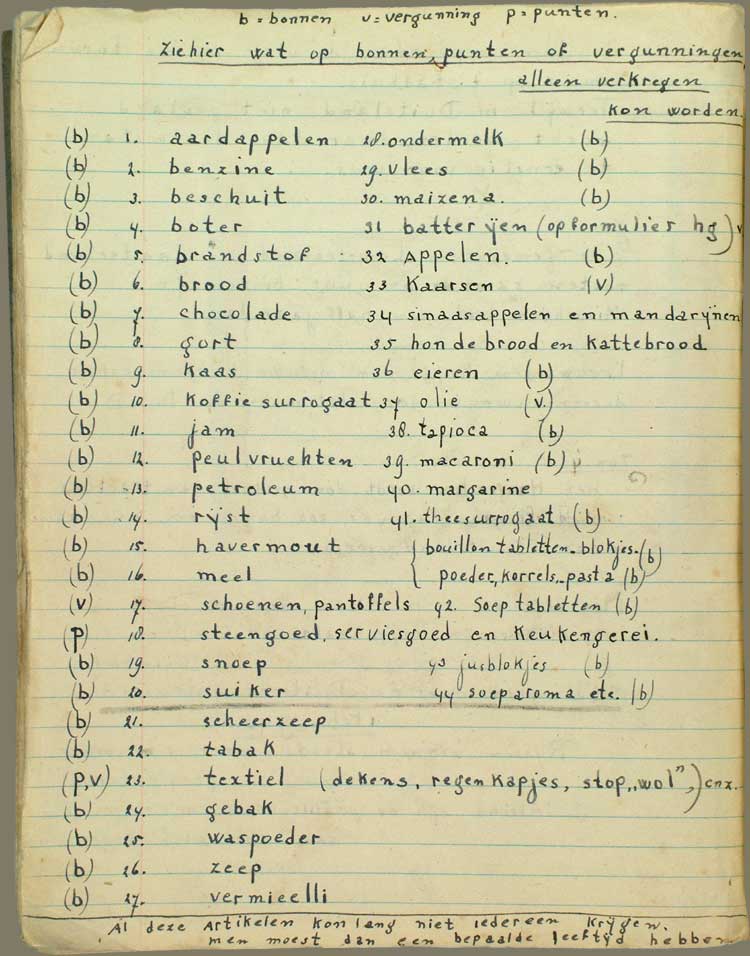 b = bonnen v = vergunning p = punten.
Ziehier wat op bonnen, punten of vergunningen
alleen verkregen
kon worden.
(b) 1. aardappelen 28. ondermelk (b)
(b) 2. benzine 29. vlees (b)
(b) 3. beschuit 30. maizena. (b)
(b) 4. boter 31 batterÿen (op formulier hg) v
(b) 5. brandstof 32 Appelen. (b)
(b) 6. brood 33 Kaarsen (v)
(b) 7. chocolade 34 sinaasappelen en mandarÿnen
(b) 8. gort 35 hondebrood en Kattebrood
(b) 9. Kaas 36 eieren (b)
(b) 10. Koffie surrogaat 37 olie (v.)
(b) 11. jam 38. tapioca (b)
(b) 12. peulvruchten 39. macaroni (b)
(b) 13. petroleum 40. margarine
(b) 14. rÿst 41. theesurrogaat (b)
(b) 15. havermout { bouillon tabletten-blokjes- (b)
(b) 16. meel poeder, korrels, pasta (b)
(v) 17. schoenen, pantoffels 42. Soep tabletten (b)
(p) 18. steengoed, serviesgoed en Keukengerei.
(b) 19. snoep 43 jusblokjes (b)
(b) 20. suiker 44 soeparoma etc. (b)
(b) 21. scheerzeep
(b) 22. tabak
(p,v) 23. textiel (dekens, regenkapjes, stop „wol",) enz.
(b) 24. gebak
(b) 25. waspoeder
(b) 26. zeep
(b) 27. vermicelli
Al deze Artikelen kon lang niet iedereen krÿgen.
men moest dan een bepaalde leeftÿd hebben